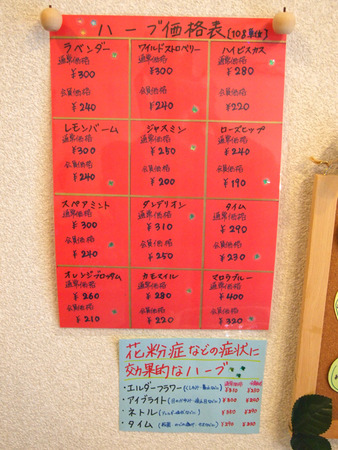 ハーブ価格表 [10g単位]
ラベンダー
通常価格
¥300
会員価格
¥240
ワイルドストロベリー
通常価格
¥300
会員価格
¥240
ハイビスカス
通常価格
¥280
会員価格
¥220
レモンバーム
通常価格
¥300
会員価格
¥240
ジャスミン
通常価格
¥250
会員価格
¥200
ローズヒップ
通常価格
¥240
会員価格
¥190
スペアミント
通常価格
¥300
会員価格
¥240
ダンデリオン
通常価格
¥310
会員価格
¥250
タイム
通常価格
¥290
会員価格
¥230
オレンジブロッサム
通常価格
¥260
会員価格
¥210
カモマイル
通常価格
¥280
会員価格
¥220
マロウブルー
通常価格
¥400
会員価格
¥320
花粉症などの症状に
効果的なハーブ
・エルダーフラワー
・アイブライト
・ネトル
・タイム